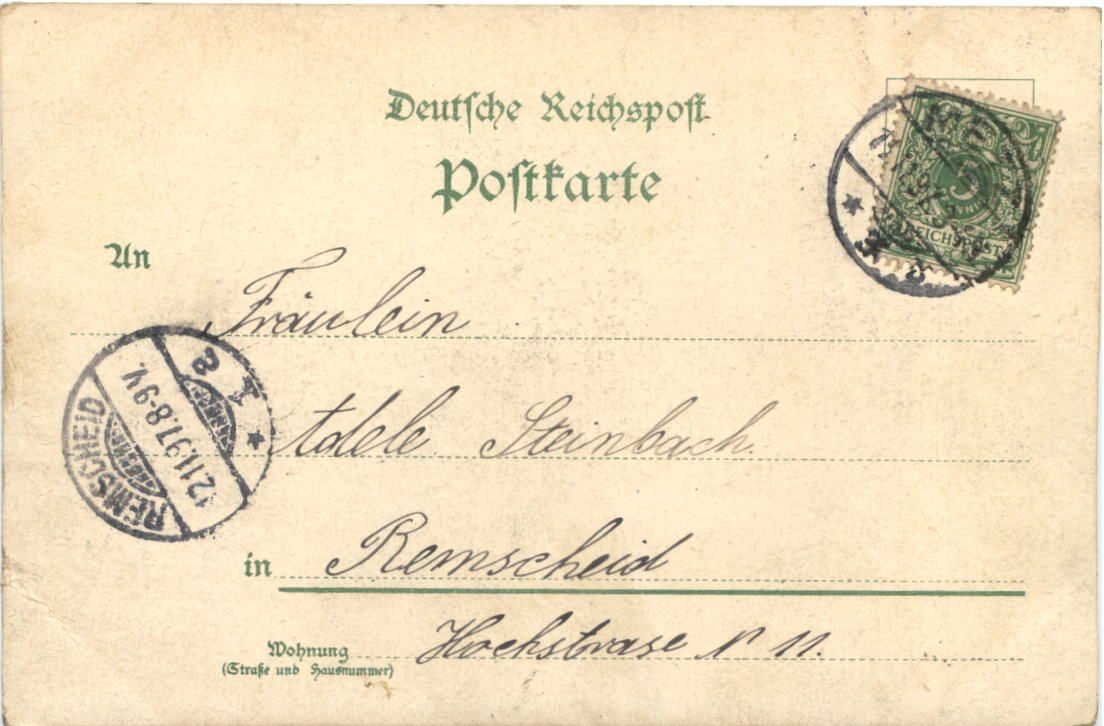 Deutsche Reichspost
Postkarte
An
Fräulein
Adele Steinbach.
in Remscheid
Wohnung
(Straße und Hausnummer)
Hochstrase N 11.
REICHSPOST
REMSCHEID
12.11.97.8-9V.
1 a